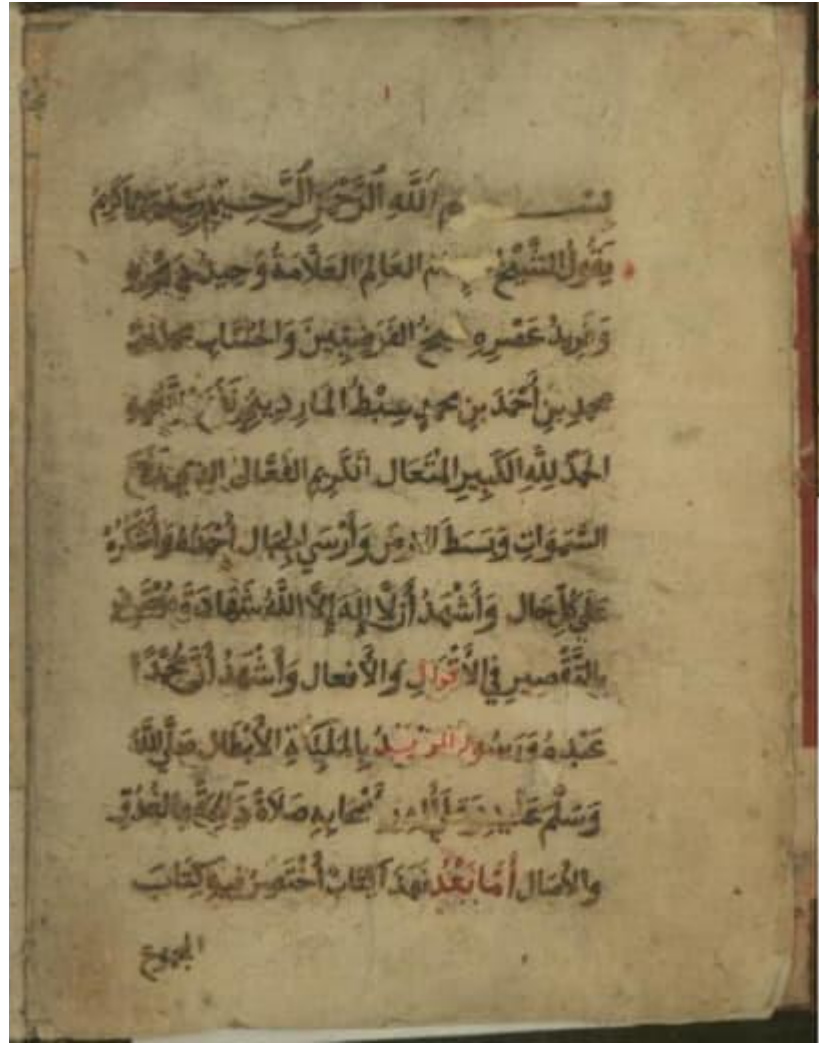 ١
بسم اللَّهِ الرَّحْمَنِ الرَّحِيمِ
يَقُولُ الشَّيْخُ العَالِمُ العَلَّامَةُ وَحِيدُ
وَفَرِيدُ عَصْرِهِ الفَرَضِيِّينَ وَالحُسَّابِ
محمدِ بنِ أَحْمَدَ بنِ محمدٍ سِبْطُ المَارِدِينِيِّ
الحَمْدُ لِلَّهِ الكَبِيرِ المُتَعَالِ الكَرِيمِ الفَعَّالِ الذِي رَفَعَ
السَّمَوَاتِ وَبَسَطَ الارضَ وَأَرْسَى الجِبَال أَحْمَدُهُ وَأَشْكُرُهُ
عَلَى كُلِّ حَال وَأَشْهَدُ أَن لَّا إِلَهَ إِلَّا اللَّهُ شَهَادَةَ
بِالتَّقْصِيرِ فِي الأَقْوَالِ وَالأَفعال وَأَشْهَدُ أَنَّ مُحَمَّدًا
عَبْدُهُ وَرَسُوله المؤيَّدُ الأَبْطَال صَلَّى اللَّهُ
وَسَلَّمَ عَلَيْهِ وَعَلَى أَصْحَابِهِ صَلَاةً دَائِمَةً بِالغُدُوِّ
والآصَال أَمَّا بَعْدُ فَهَذَا كِتَابٌ أَخْتَصِرُ فِيهِ كِتَابَ
المجموع